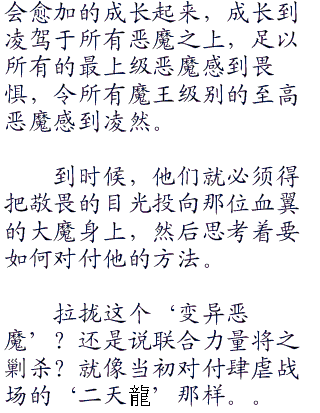 会愈加的成长起来，成长到
凌驾于所有恶魔之上，足以
所有的最上级恶魔感到畏
惧，令所有魔王级别的至高
恶魔感到凌然。
到时候，他们就必须得
把敬畏的目光投向那位血翼
的大魔身上，然后思考着要
如何对付他的方法。
拉拢这个‘变异恶
魔’？还是说联合力量将之
剿杀？就像当初对付肆虐战
场的‘二天龍’那样。。